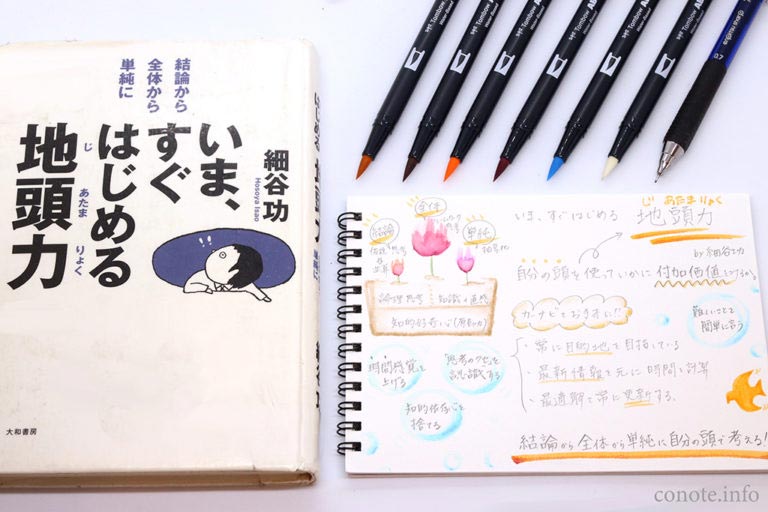 結論から
全体から
単純に
いま、
すぐ
はじめる
地頭力
じ あたま りょく
細谷功
Hosoya Isao
大和書房
Tombow
Tombow
Tombow
Tombow
0.7
いま、すぐはじめる
じ あたま りょく
地頭力
by 細谷功
自分の頭を使っていかに付加価値をつけるか
カーナビをお手本に!!
・常に目的地を目指している
・最新情報を元に時間を計算
・最適解を常に更新する。
結論から全体から単純に自分の頭で考える!
難しいことを
簡単に言う
全体
フレームワーク
思考
結論
仮説思考
単純
論理思考
知識の直感
知的好奇心(原動力)
時間感覚を
上げる
「思考のクセ」を
認識する
知的依存心を
捨てる
conote.info